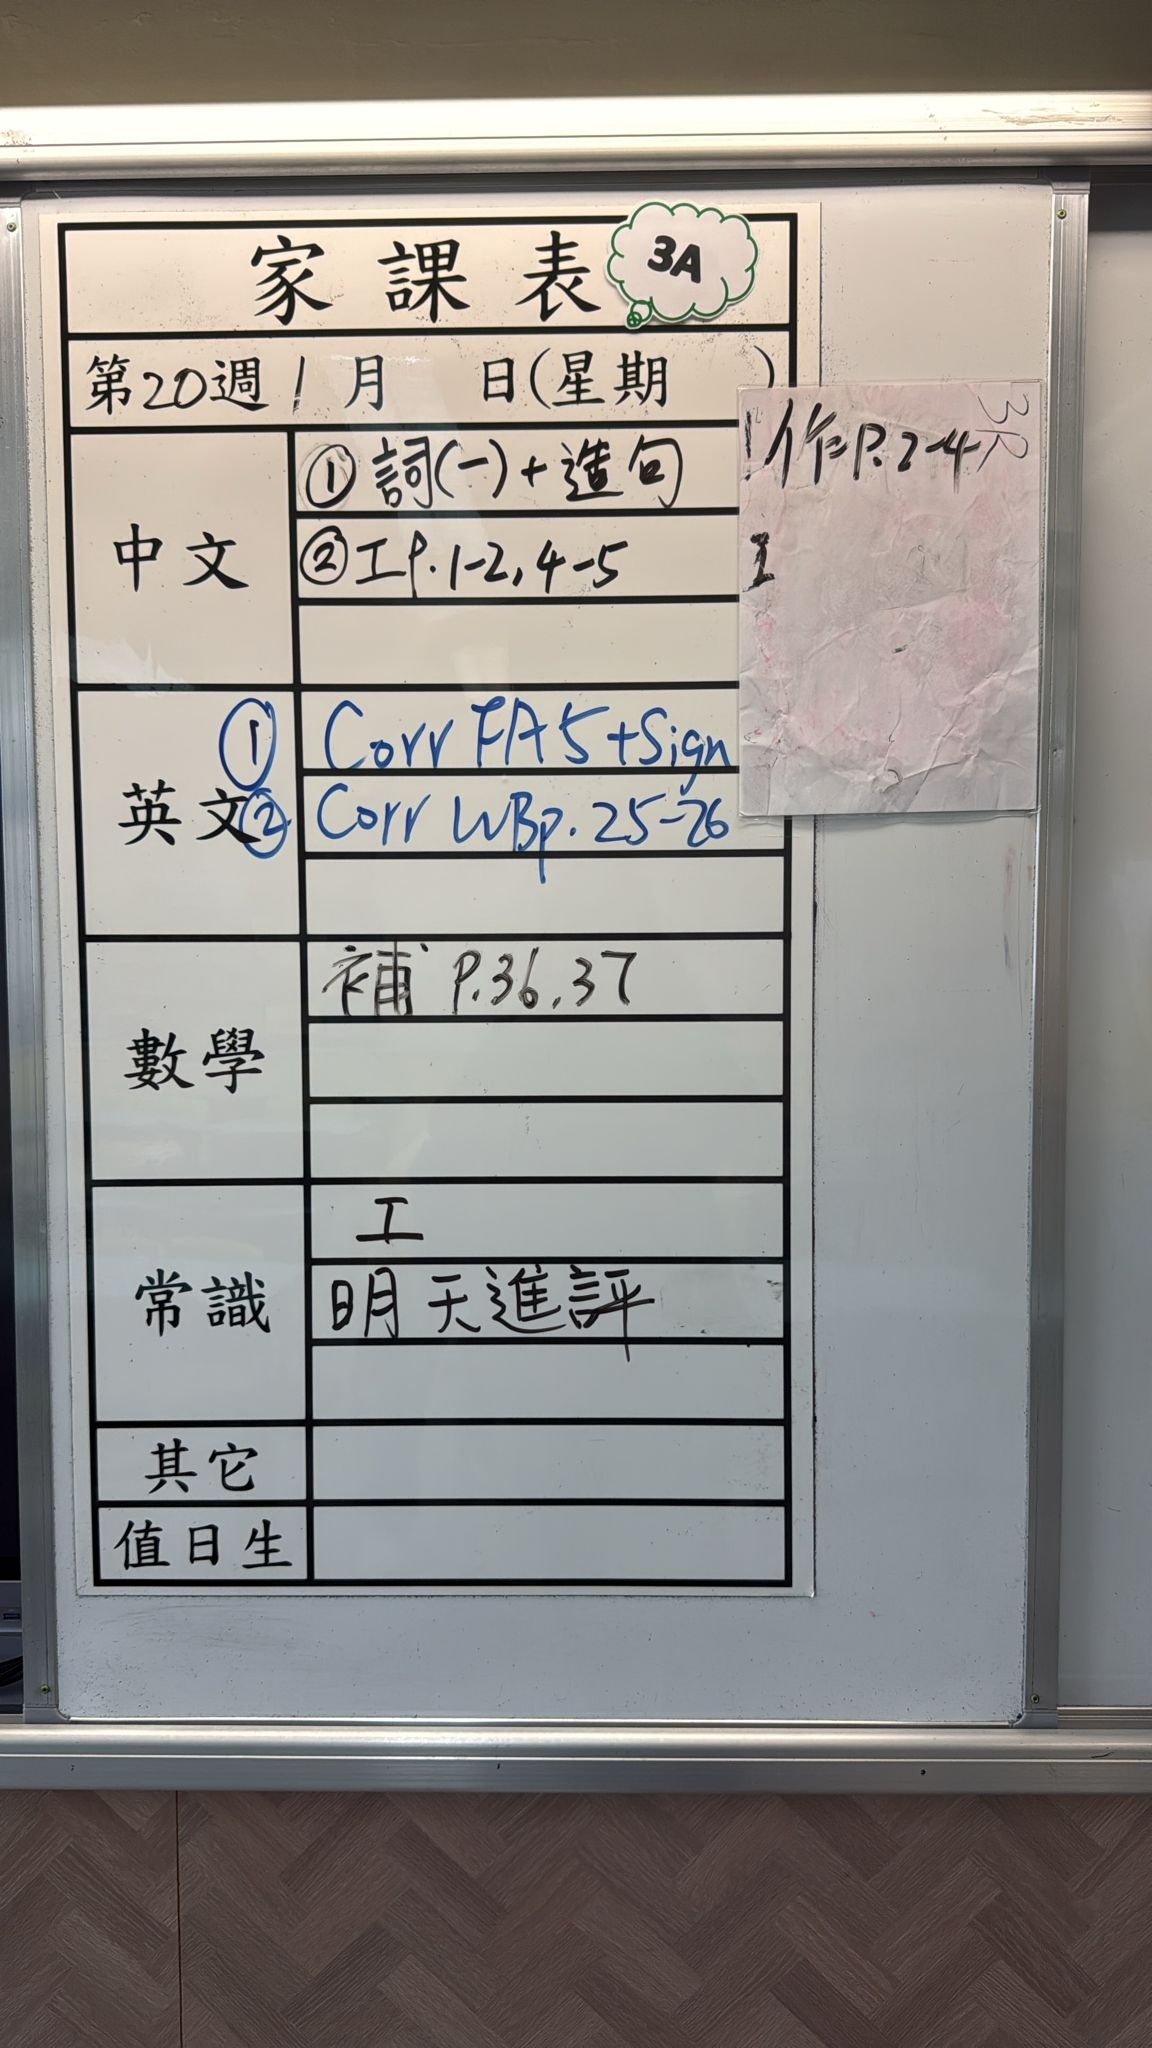 家課表
3A
第20週 1月 日(星期 )
中文
① 詞(一)+造句
② 工P.1-2,4-5
3R
作P.2-4
工
英文
① Corr FA5+Sign
② Corr WBp.25-26
數學
補 P.36,37
常識
工
明天進評
其它
值日生